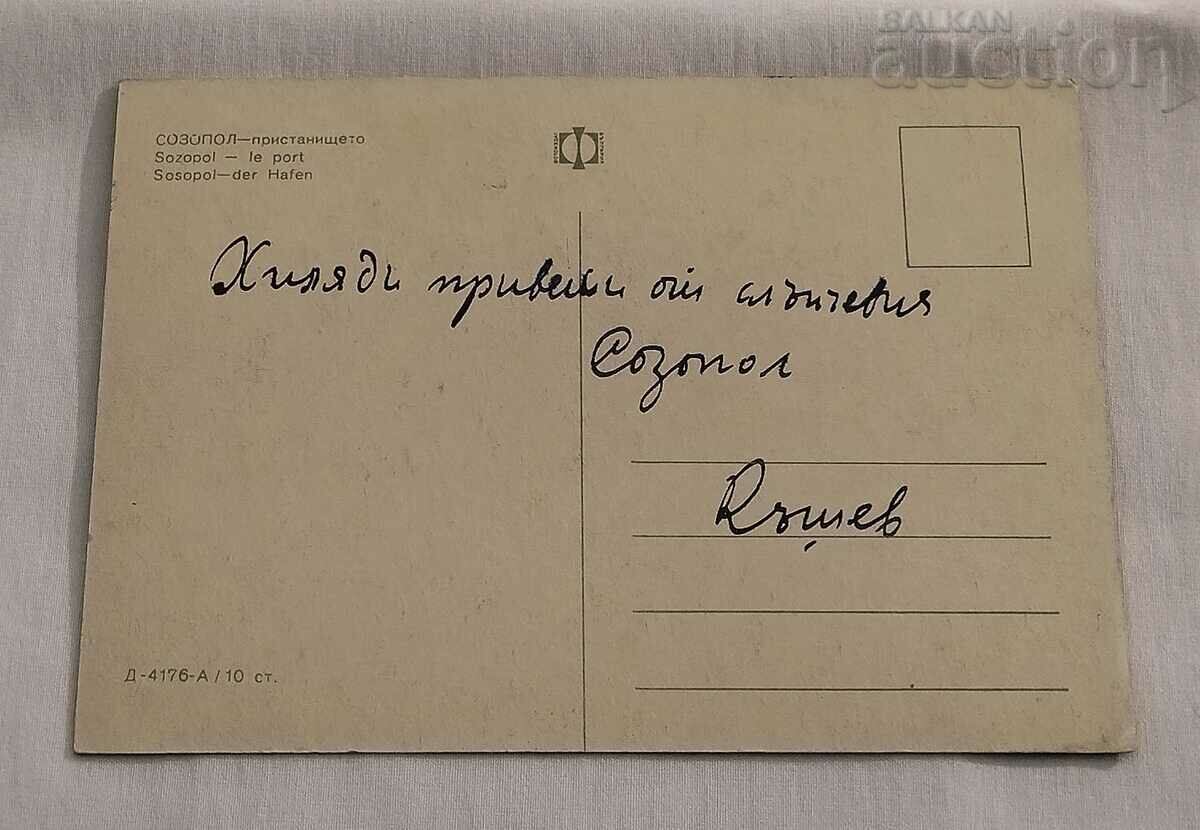 BALKAN
auction
СОЗОПОЛ—пристанището
Sozopol — le port
Sosopol—der Hafen
Хиляди привети от слънчевия
Созопол
Къшев
Д-4176-А / 10 ст.